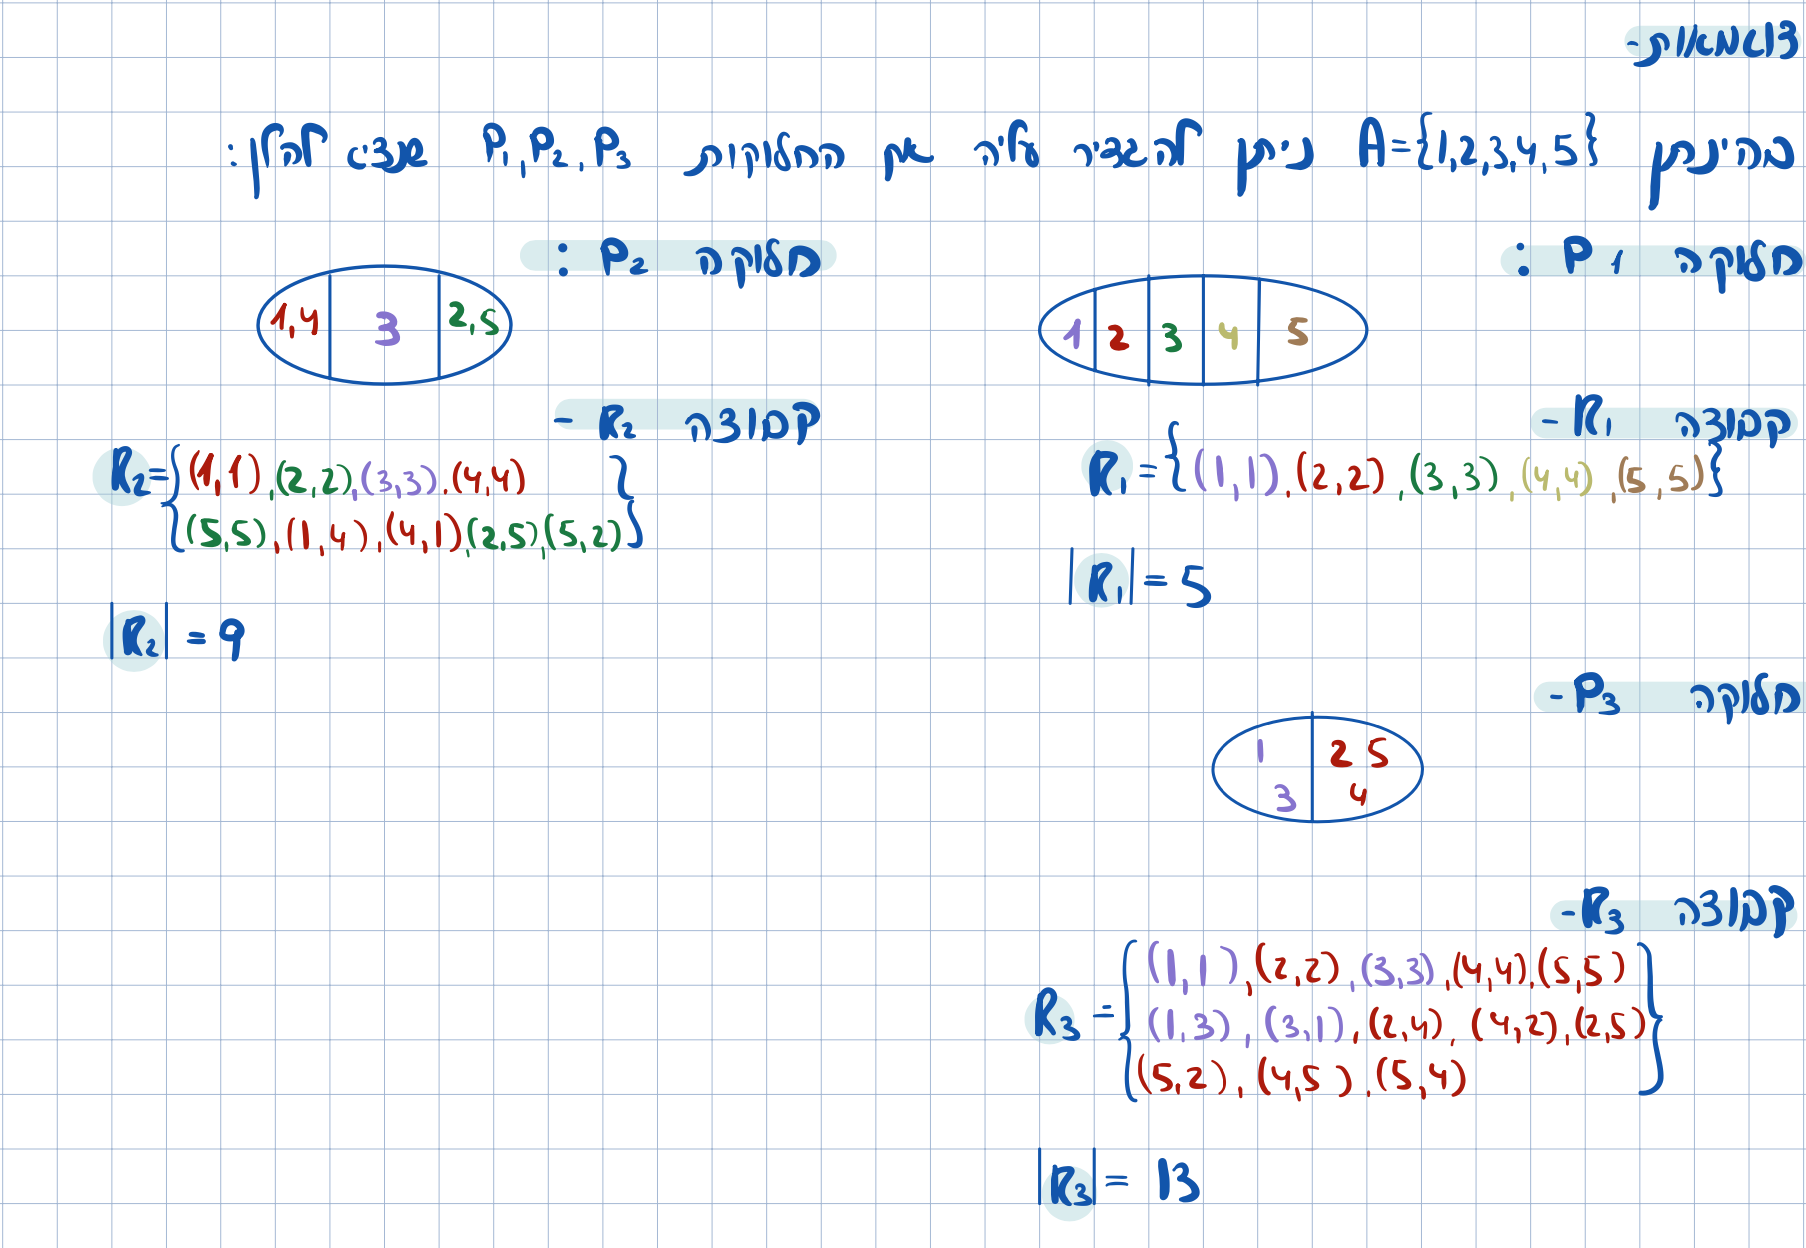 דוגמאות-
בהינתן A={1,2,3,4,5} ניתן להגדיר עליה את החלוקות P₁,P₂,P₃ שנציג להלן:
חלוקה P₁:
1 2 3 4 5
קבוצה R₁ -
R₁={(1,1),(2,2),(3,3),(4,4),(5,5)}
|R₁|=5
חלוקה P₂:
1,4 3 2,5
קבוצה R₂ -
R₂={(1,1),(2,2),(3,3),(4,4)
(5,5),(1,4),(4,1),(2,5),(5,2)}
|R₂|=9
חלוקה P₃-
1 2 5
3 4
קבוצה R₃-
R₃={(1,1),(2,2),(3,3),(4,4),(5,5)
(1,3),(3,1),(2,4),(4,2),(2,5)
(5,2),(4,5),(5,4)}
|R₃|=13